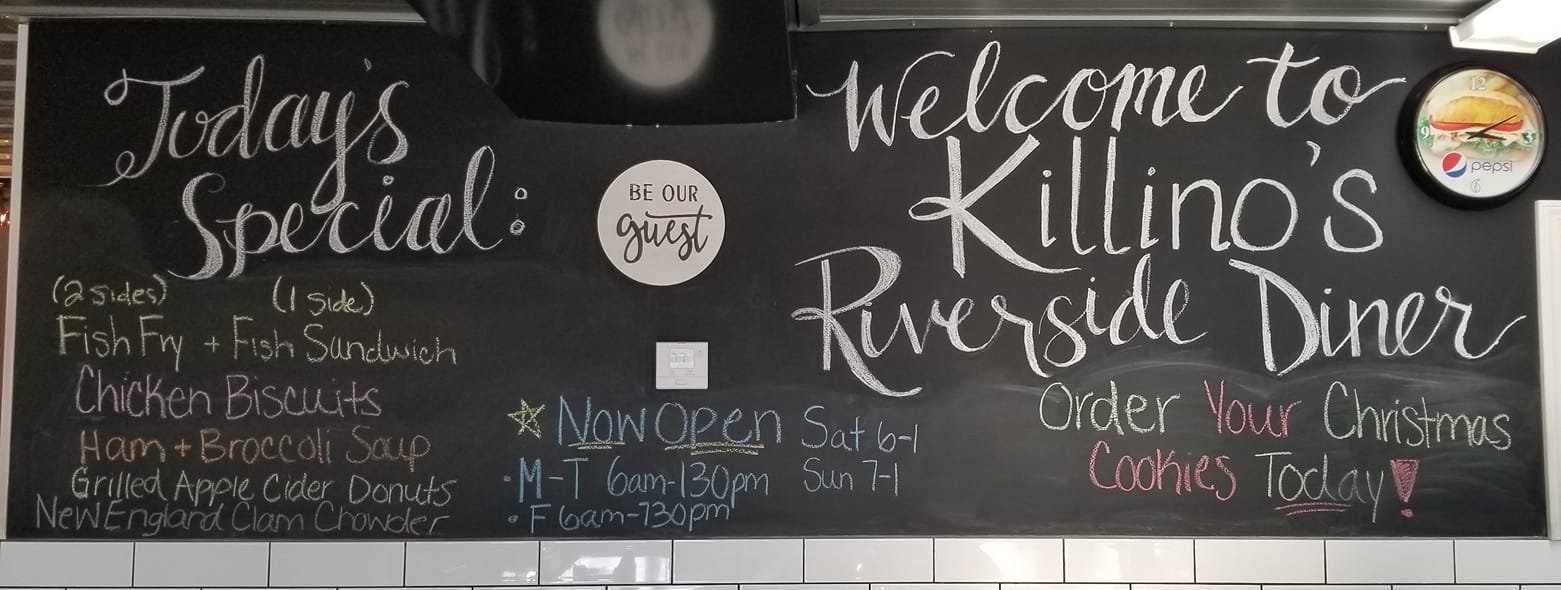 Today's
Special:
(2 sides) (1 side)
Fish Fry + Fish Sandwich
Chicken Biscuits
Ham + Broccoli Soup
Grilled Apple Cider Donuts
New England Clam Chowder
BE OUR
guest
Now Open
M-T 6am-130pm
F 6am-730pm
Sat 6-1
Sun 7-1
Welcome to
Killino's
Riverside Diner
Order Your Christmas
Cookies Today!
12
9 3
pepsi
6